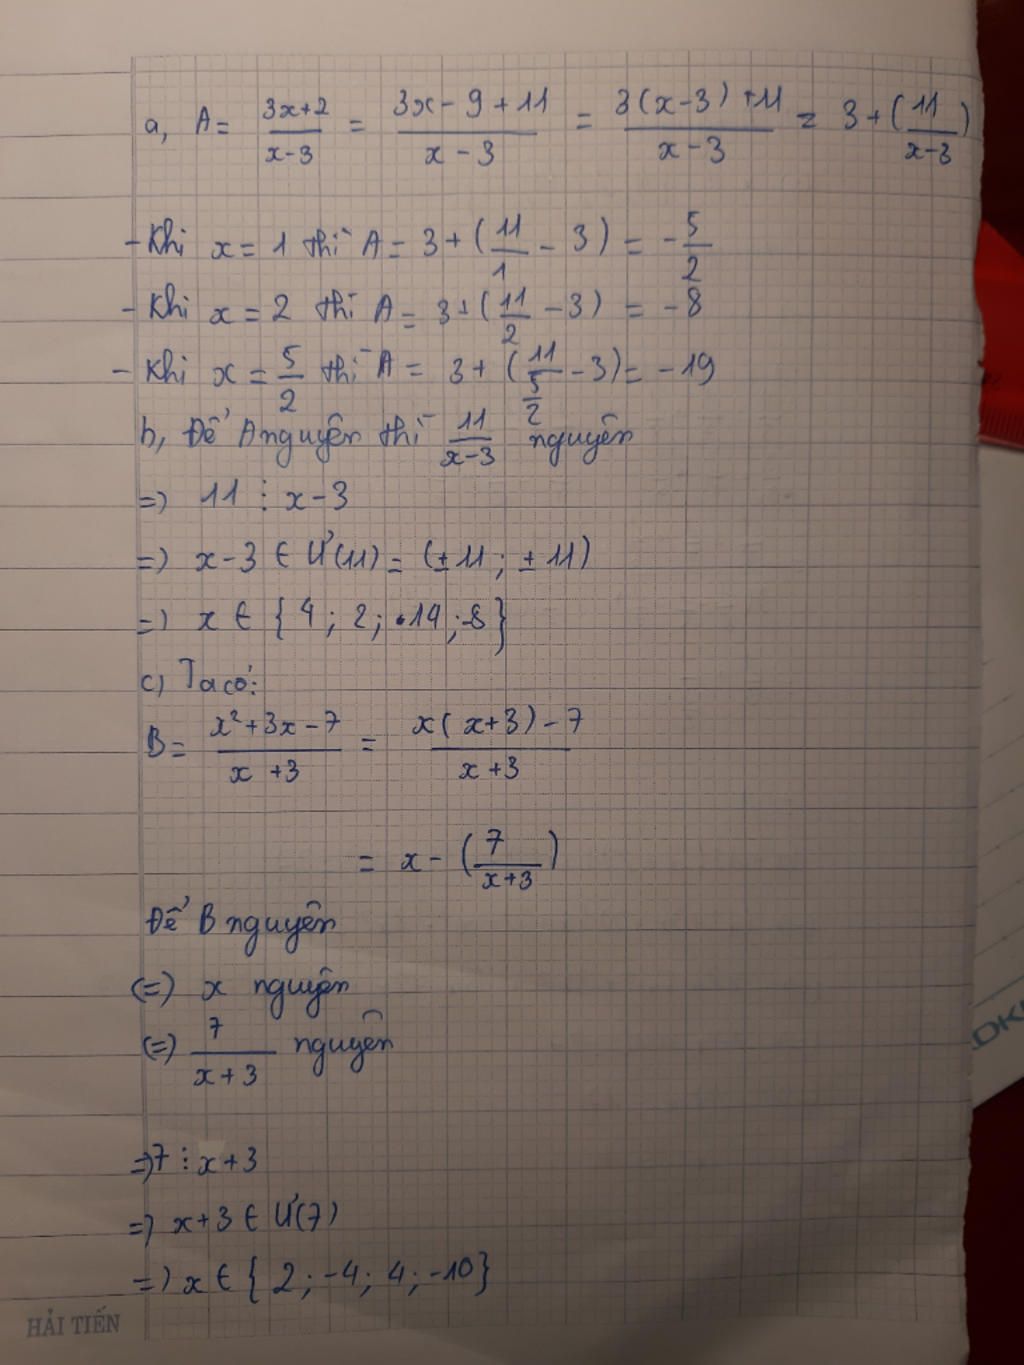 a, A = \frac{3x+2}{x-3} = \frac{3x-9+11}{x-3} = \frac{3(x-3)+11}{x-3} = 3+(\frac{11}{x-3})
- Khi x = 1 thì A = 3+(\frac{11}{1} - 3) = -\frac{5}{2}
- Khi x = 2 thì A = 3+(\frac{11}{2} - 3) = -8
- Khi x = \frac{5}{2} thì A = 3+(\frac{11}{\frac{5}{2}} - 3) = -19
b, Để A nguyên thì \frac{11}{x-3} nguyên
=) 11 ⋮ x-3
=) x-3 ∈ Ư(11) = (±11; ±11)
=) x ∈ {4; 2; 14; -8}
c) Ta có:
B = \frac{x²+3x-7}{x+3} = \frac{x(x+3)-7}{x+3}
= x-(\frac{7}{x+3})
Để B nguyên
(=) x nguyên
(=) \frac{7}{x+3} nguyên
=) 7 ⋮ x+3
=) x+3 ∈ Ư(7)
=) x ∈ {2; -4; 4; -10}
HẢI TIẾN